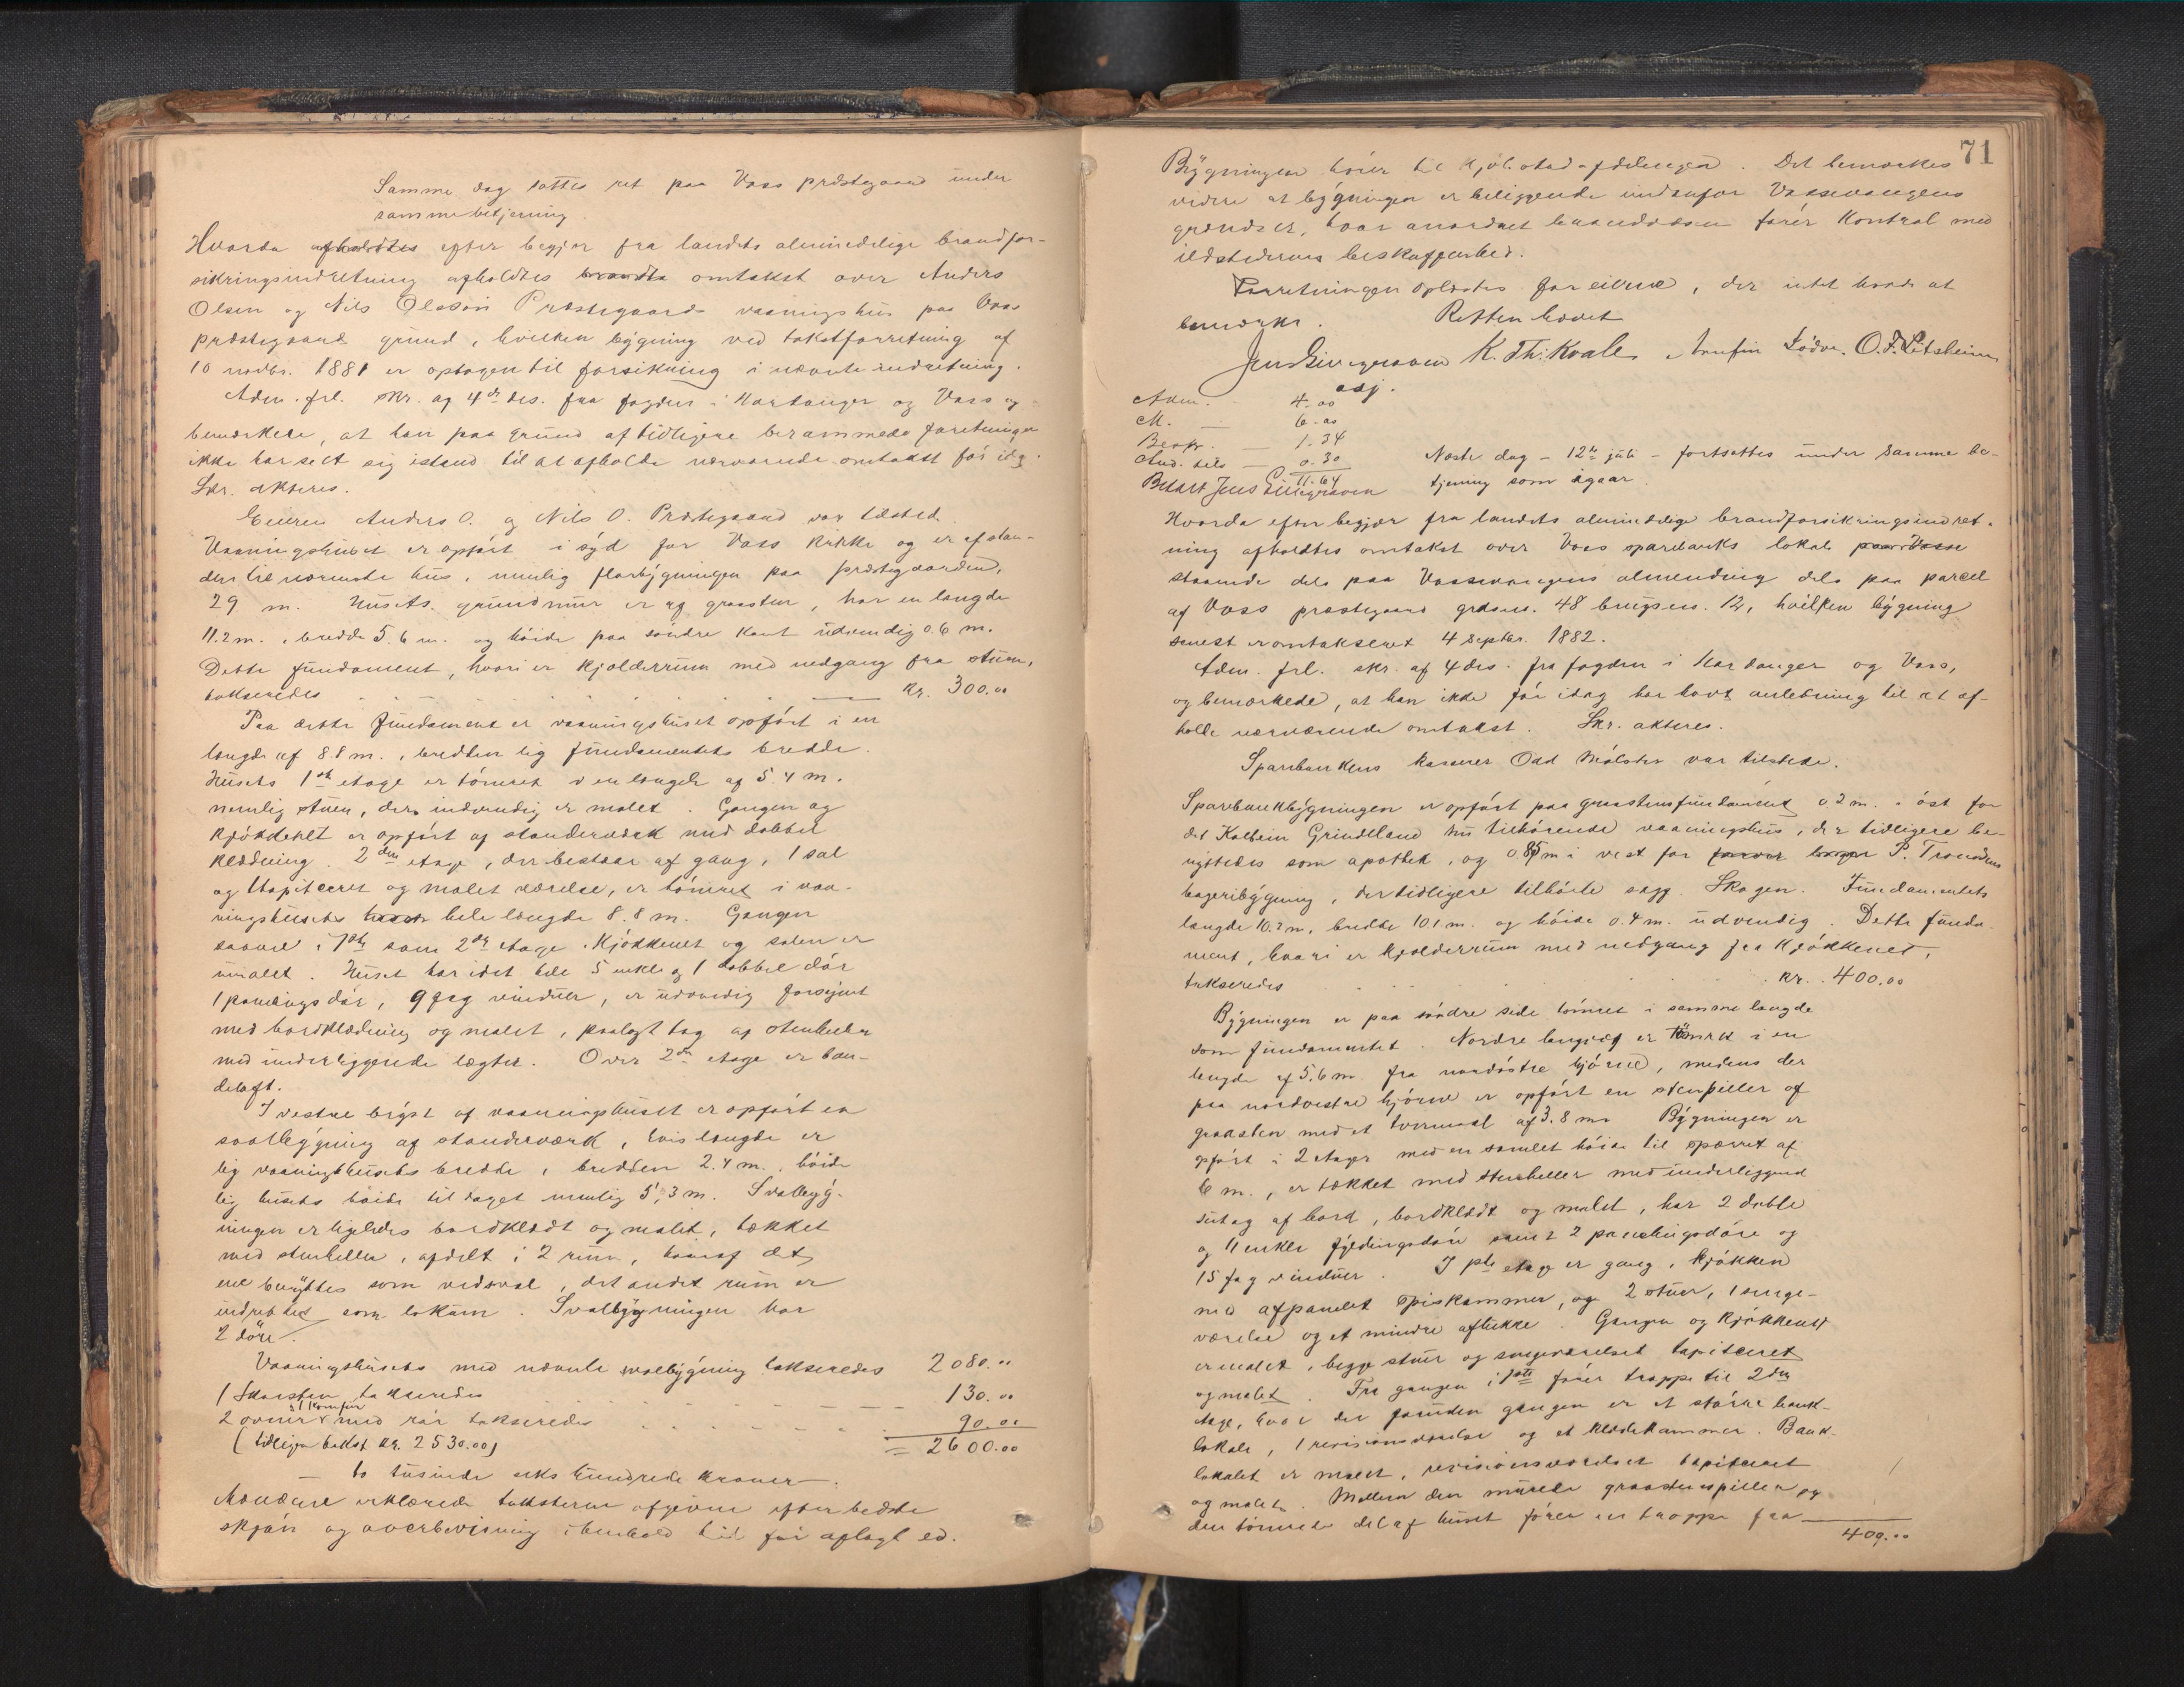 Samme dag sattes ret paa Voss præstegaard under
samme betjening.
Hvorda afholdtes efter begjær fra landets almindelige brandfor-
sikringsindretning afholdtes brandta omtakst over Anders
Olsen og Nils Olsson Præstegaards vaaningshus paa Voss
præstegaards grund, hvilken bygning ved takstforretning af
10 novbr. 1881 er optagen til forsikring i nævnte indretning.
Adm. frl. skr. af 4de ds. fra fogden i Hardanger og Voss og
bemærkede, at han paa grund af tidligere berammede forretninger
ikke har seet sig istand til at afholde nærværende omtakst før idag.
Skr. akteres.
Eieren Anders O. og Nils O. Præstegaard var tilsted.
Vaaningshuset er opført i syd for Voss kirke og er afstan-
den til nærmeste hus, nemlig florbygningen paa præstegaarden,
29 m. Husets grundmur er af graasten, har en længde
11.2 m., bredde 5.6 m. og høide paa søndre kant udvendig 0.6 m.
Dette fundament, hvori er kjælderrum med nedgang fra stuen,
takseredes kr. 300.00
Paa dette fundament er vaaningshuset opført i en
længde af 8.8 m., bredden lig fundamentets bredde.
Husets 1ste etage er tømret i en længde af 5.4 m.
nemlig stuen, der indvendig er malet. Gangen og
kjøkkenet er opført af standerværk med dobbel
klædning. 2den etage, der bestaar af gang, 1 sal
og 1 tapiceret og malet værelse, er tømret i vaa-
ningshusets hele længde 8.8 m. Gangen
saavel i 1ste som 2den etage, kjøkkenet og salen er
umalet. Huset har idet hele 5 enkle og 1 dobbel dør
1 panelingsdør, 9 fag vinduer, er udvendig forsynet
med bordklædning og malet, paalagt tag af stenheller
med underliggende lægter. Over 2den etage er ban-
deloft.
I vestre bryst af vaaningshuset er opført en
svalbygning af standerværk, hvis længde er
lig vaaningshusets bredde, bredden 2.4 m., høide
lig husets høide til taget nemlig 5,3 m. Svalbyg-
ningen er ligeledes bordklædt og malet, tækket
med stenheller, afdelt i 2 rum, hvoraf det
ene benyttes som vedsval, det andet rum er
indrettet som lokum. Svalbygningen har
2 døre.
Vaaningshusets med nævnte svalbygning takseredes 2080.00
1 Skorsten takseredes 130.00
og 1 komfur
2 ovner med rør takseredes 90.00
(tidligere takst kr. 2530.00) = 2600.00
– to tusinde seks hundrede kroner –.
Mændene erklærede taksterne afgivne efter bedste
skjøn og overbevisning i henhold til før aflagt ed.
71
Bygningen hører til kjøbstadafdelingen. Det bemærkes
videre at bygningen er beliggende indenfor Vossevangens
grændser, hvor anordnet brandvæsen fører kontrol med
ildstedernes beskaffenhed.
Forretningen oplæstes for eierne, der intet havde at
bemærke. Retten hævet
Jens Gjerngraven K. Th. Kvale Arnfin Lødve. O. F. Litsheim
adj.
Adm. 4.00
M. – 6.00
Bef. – 1.34
And. dels – 0.30
11.64
Betalt Jens
Næste dag – 12te juli – fortsattes under samme be-
tjening som igaar.
Hvorda efter begjær fra landets almindelige brandforsikringsindret-
ning afholdtes omtakst over Voss sparebanks lokale paa Vosse
staaende dels paa Vossevangens almending dels paa parcel
af Voss præstegaard grdsno. 48 brugsno. 12, hvilken bygning
senest er omtakseret 4 septbr. 1882.
Adm. frl. skr. af 4 ds. fra fogden i Hardanger og Voss,
og bemærkede, at han ikke før idag har havt anledning til at af-
holde nærværende omtakst. Skr. akteres.
Sparebankens kasserer Odd Mølster var tilstede.
Sparebankbygningen er opført paa graastensfundament 0.2 m. i øst for
det Kolbein Grindland nu tilhørende vaaningshus, der tidligere be-
nyttedes som apothek, og 0.85 m i vest for P. Trondsens
bageribygning, der tidligere tilhørte sagf. Skogen. Fundamentets
længde 10.2 m, bredde 10.1 m. og høide 0.4 m. udvendig. Dette funda-
ment, hvori er kjælderrum med nedgang fra kjøkkenet,
takseredes kr. 400.00
Bygningen er paa søndre side tømret i samme længde
som fundamentet. Nordre langvæg er tømret i en
længde af 5.6 m. fra nordøstre hjørne, medens der
paa nordvestre hjørne er opført en stenpiller af
graasten med et tvermaal af 3.8 m. Bygningen er
opført i 2 etager med en samlet høide til sparret af
6 m., er tækket med stenheller med underliggende
sutag af bord, bordklædt og malet, har 2 doble
og 11 enkle fyldingsdøre samt 2 panelingsdøre og
15 fag vinduer. I 1ste etage er gang, kjøkken
med afpanelet spiskammer, og 2 stuer, 1 senge-
værelse og et mindre aflukke. Gangen og kjøkkenet
er malet, begge stuer og sengeværelset tapiceret
og malet. Fra gangen i 1ste fører trappe til 2den
etage, hvor der foruden gangen er et større bank-
lokale, 1 revisionsværelse og et klædekammer. Bank-
lokalet er malet, revisionsværelset tapiceret
og malet. Mellem den murede graastenspiller og
den tømrede del af huset fører en trappe fra
400.00